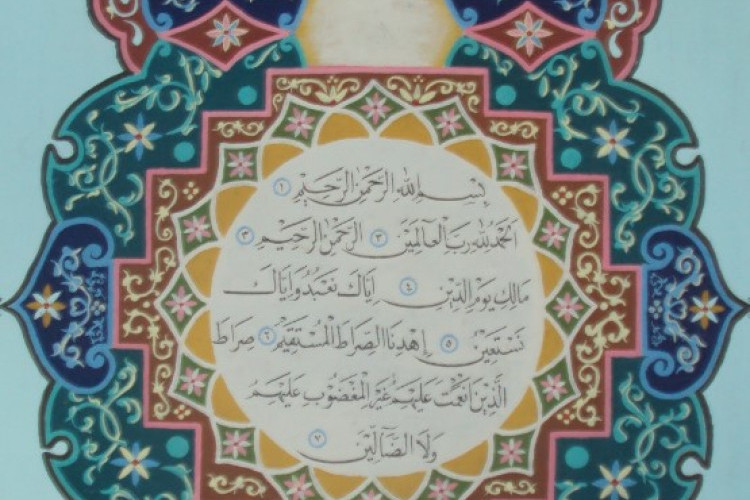 بسم الله الرحمن الرحيم ١
الحمد لله رب العالمين ٢ الرحمن الرحيم ٣
مالك يوم الدين ٤ اياك نعبد واياك
نستعين ٥ إهدنا الصراط المستقيم ٦ صراط
الذين انعمت عليهم غير المغضوب عليهم
ولا الضآلين ٧